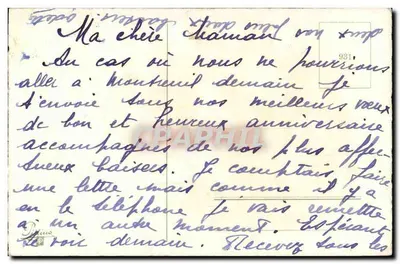 Ma chère Maman
Au cas où nous ne pourrions
aller à Montreuil demain je
t'envoie tous nos meilleurs vœux
de bon et heureux anniversaire
accompagné de nos plus affec-
tueux baisers. Je comptais faire
une lettre mais comme il y a
eu le téléphone je vais remettre
à un autre moment. Espérant
te voir demain. Recevez tous les
deux nos plus doux baisers
931